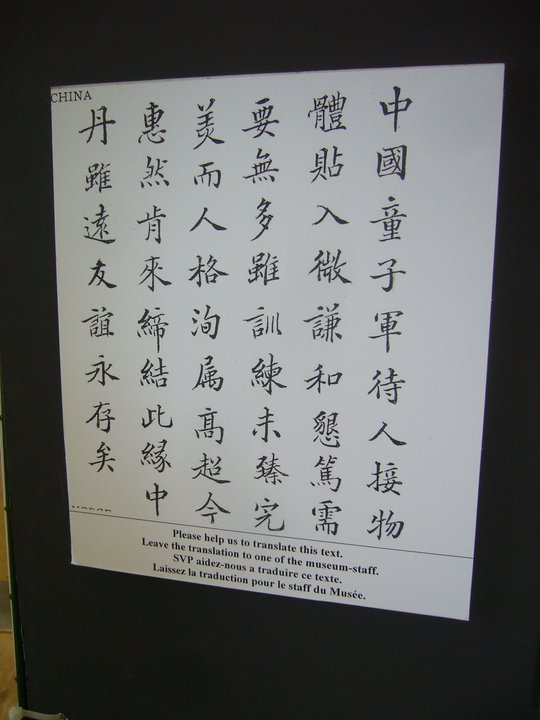 CHINA
中國童子軍待人接物
體貼入微謙和懇篤需
要無多雖訓練未臻完
美而人格洵属高超今
惠然肯來締結此緣中
丹雖遠友誼永存矣
Please help us to translate this text.
Leave the translation to one of the museum-staff.
SVP aidez-nous a traduire ce texte.
Laissez la traduction pour le staff du Musée.